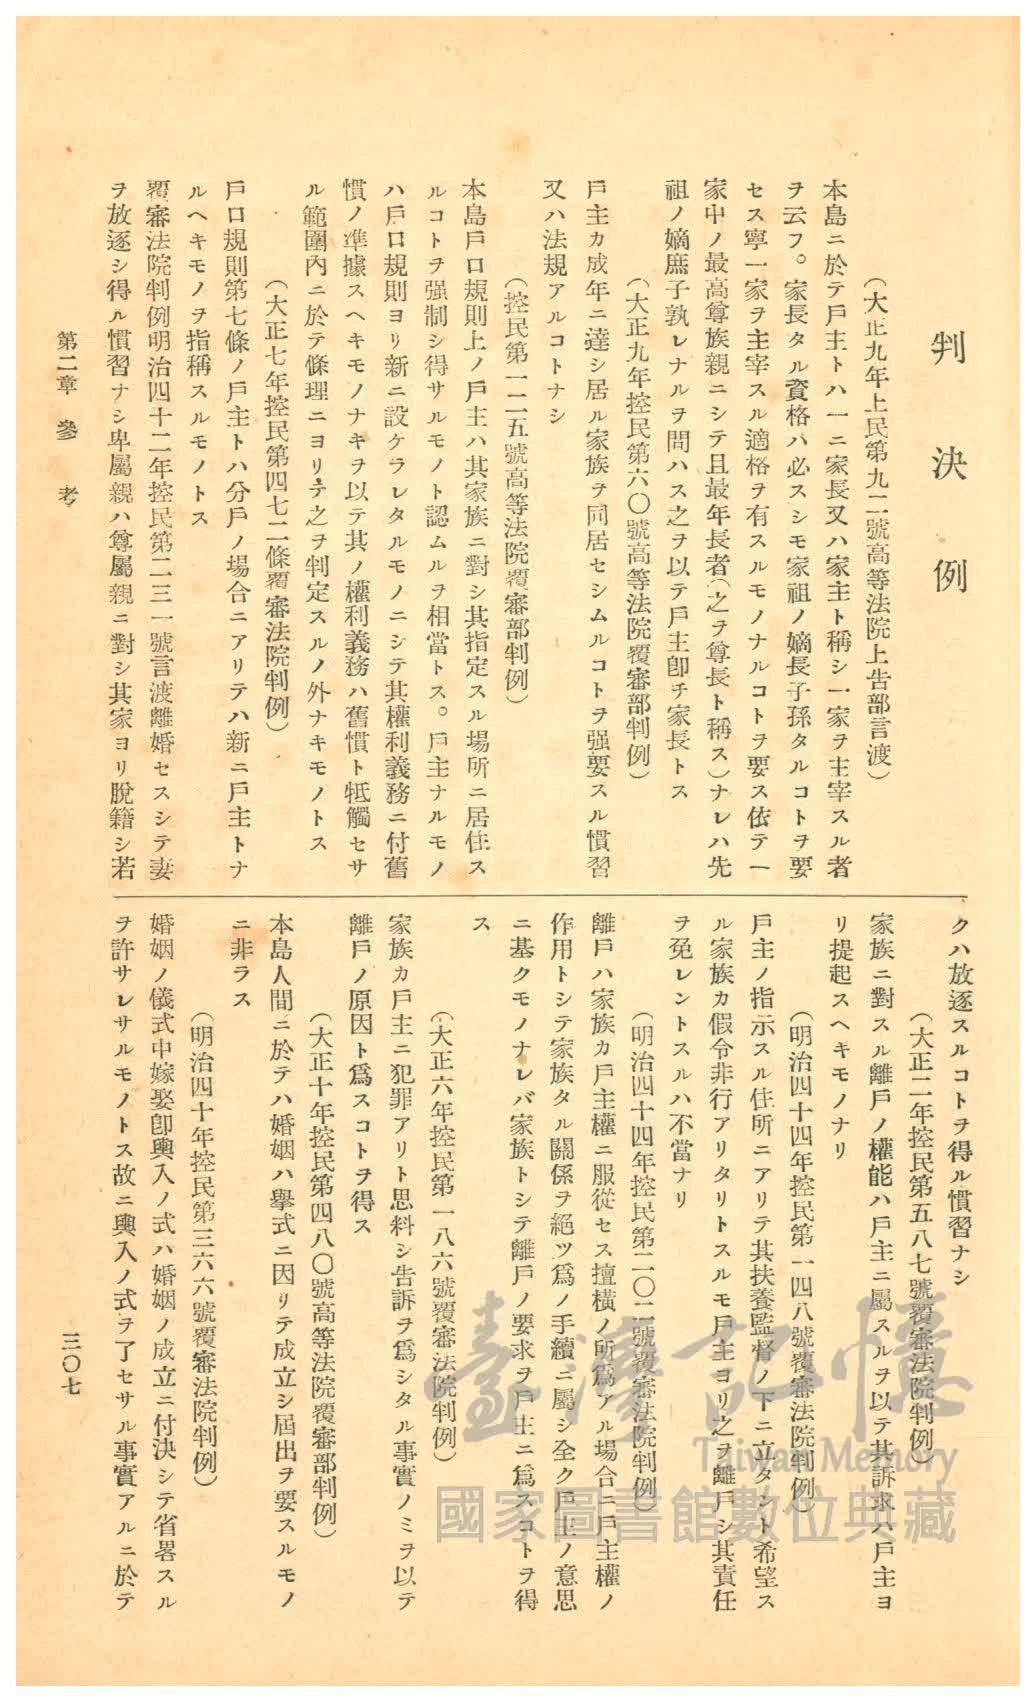 判決例
（大正九年上民第九二號高等法院上告部言渡）
本島ニ於テ戶主トハ一ニ家長又ハ家主ト稱シ一家ヲ主宰スル者
ヲ云フ。家長タル資格ハ必スシモ家祖ノ嫡長子孫タルコトヲ要
セス寧一家ヲ主宰スル適格ヲ有スルモノナルコトヲ要ス依テ一
家中ノ最高尊族親ニシテ且最年長者（之ヲ尊長ト稱ス）ナレハ先
祖ノ嫡庶子孰レナルヲ問ハス之ヲ以テ戶主卽チ家長トス
（大正九年控民第六〇號高等法院覆審部判例）
戶主カ成年ニ達シ居ル家族ヲ同居セシムルコトヲ强要スル慣習
又ハ法規アルコトナシ
（控民第一二五號高等法院覆審部判例）
本島戶口規則上ノ戶主ハ其家族ニ對シ其指定スル場所ニ居住ス
ルコトヲ强制シ得サルモノト認ムルヲ相當トス。戶主ナルモノ
ハ戶口規則ヨリ新ニ設ケラレタルモノニシテ其權利義務ニ付舊
慣ノ準據スヘキモノナキヲ以テ其ノ權利義務ハ舊慣ト牴觸セサ
ル範圍內ニ於テ條理ニヨリテ之ヲ判定スルノ外ナキモノトス
（大正七年控民第四七二條覆審法院判例）
戶口規則第七條ノ戶主トハ分戶ノ場合ニアリテハ新ニ戶主トナ
ルヘキモノヲ指稱スルモノトス
覆審法院判例明治四十二年控民第二三一號言渡離婚セスシテ妻
ヲ放逐シ得ル慣習ナシ卑屬親ハ尊屬親ニ對シ其家ヨリ脫籍シ若
クハ放逐スルコトヲ得ル慣習ナシ
（大正二年控民第五八七號覆審法院判例）
家族ニ對スル離戶ノ權能ハ戶主ニ屬スルヲ以テ其訴求ハ戶主ヨ
リ提起スヘキモノナリ
（明治四十四年控民第一四八號覆審法院判例）
戶主ノ指示スル住所ニアリテ其扶養監督ノ下ニ立タント希望ス
ル家族カ假令非行アリタリトスルモ戶主ヨリ之ヲ離戶シ其責任
ヲ免レントスルハ不當ナリ
（明治四十四年控民第二〇二號覆審法院判例）
離戶ハ家族カ戶主權ニ服從セス擅橫ノ所爲アル場合ニ戶主權ノ
作用トシテ家族タル關係ヲ絕ツ爲ノ手續ニ屬シ全ク戶主ノ意思
ニ基クモノナレバ家族トシテ離戶ノ要求ヲ戶主ニ爲スコトヲ得
ス
（大正六年控民第一八六號覆審法院判例）
家族カ戶主ニ犯罪アリト思料シ告訴ヲ爲シタル事實ノミヲ以テ
離戶ノ原因ト爲スコトヲ得ス
（大正十年控民第四八〇號高等法院覆審部判例）
本島人間ニ於テハ婚姻ハ擧式ニ因リテ成立シ屆出ヲ要スルモノ
ニ非ラス
（明治四十年控民第三六六號覆審法院判例）
婚姻ノ儀式中嫁娶卽輿入ノ式ハ婚姻ノ成立ニ付決シテ省畧スル
ヲ許サレサルモノトス故ニ輿入ノ式ヲ了セサル事實アルニ於テ
第二章 參考
三〇七
臺灣記憶
Taiwan Memory
國家圖書館數位典藏